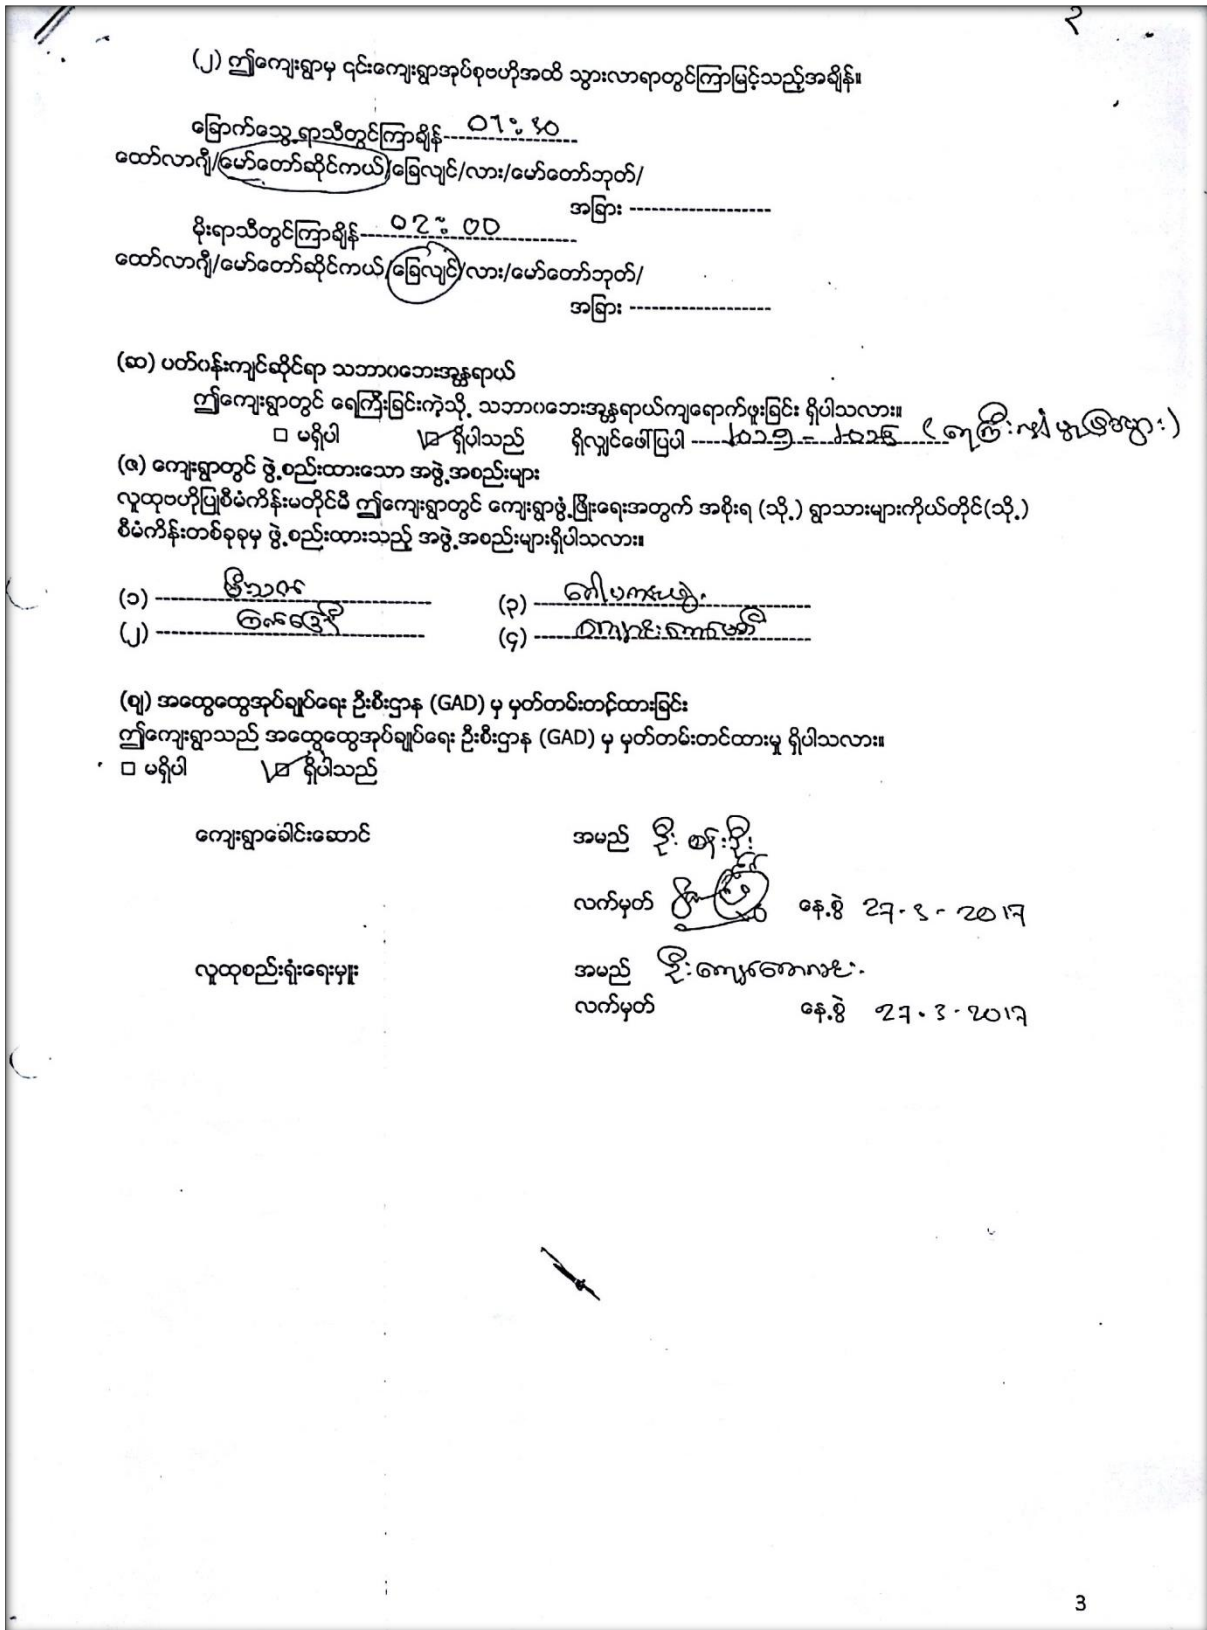 ၃
(၂) ဤကျေးရွာမှ ၎င်းကျေးရွာအုပ်စုဗဟိုအထိ သွားလာရာတွင်ကြာမြင့်သည့်အချိန်။
ခြောက်သွေ့ရာသီတွင်ကြာချိန်------------------ 01:30
ထော်လာဂျီ/မော်တော်ဆိုင်ကယ်/ခြေလျင်/လား/မော်တော်ဘုတ်/
အခြား -------------------
မိုးရာသီတွင်ကြာချိန်----------------------------- 02:00
ထော်လာဂျီ/မော်တော်ဆိုင်ကယ်/ခြေလျင်/လား/မော်တော်ဘုတ်/
အခြား -------------------
(ဆ) ပတ်ဝန်းကျင်ဆိုင်ရာ သဘာဝဘေးအန္တရာယ်
ဤကျေးရွာတွင် ရေကြီးခြင်းကဲ့သို့ သဘာဝဘေးအန္တရာယ်ကျရောက်ဖူးခြင်း ရှိပါသလား။
□ မရှိပါ □ ရှိပါသည် ရှိလျှင်ဖော်ပြပါ
(ဇ) ကျေးရွာတွင် ဖွဲ့စည်းထားသော အဖွဲ့အစည်းများ
လူထုဗဟိုပြုစီမံကိန်းမတိုင်မီ ဤကျေးရွာတွင် ကျေးရွာဖွံ့ဖြိုးရေးအတွက် အစိုးရ (သို့) ရွာသားများကိုယ်တိုင်(သို့)
စီမံကိန်းတစ်ခုခုမှ ဖွဲ့စည်းထားသည့် အဖွဲ့အစည်းများရှိပါသလား။
(၁) မီးသတ် (၃)
(၂) ကြက်ခြေနီ (၄) ကျောင်းကော်မတီ
(ဈ) အထွေထွေအုပ်ချုပ်ရေး ဦးစီးဌာန (GAD) မှ မှတ်တမ်းတင့်ထားခြင်း
ဤကျေးရွာသည် အထွေထွေအုပ်ချုပ်ရေး ဦးစီးဌာန (GAD) မှ မှတ်တမ်းတင်ထားမှု ရှိပါသလား။
□ မရှိပါ □ ရှိပါသည်
ကျေးရွာခေါင်းဆောင် အမည် ဦး စန်းဦး
လက်မှတ် နေ့စွဲ 27-3-2017
လူထုစည်းရုံးရေးမှူး အမည် ဦး
လက်မှတ် နေ့စွဲ 27.3.2017
3